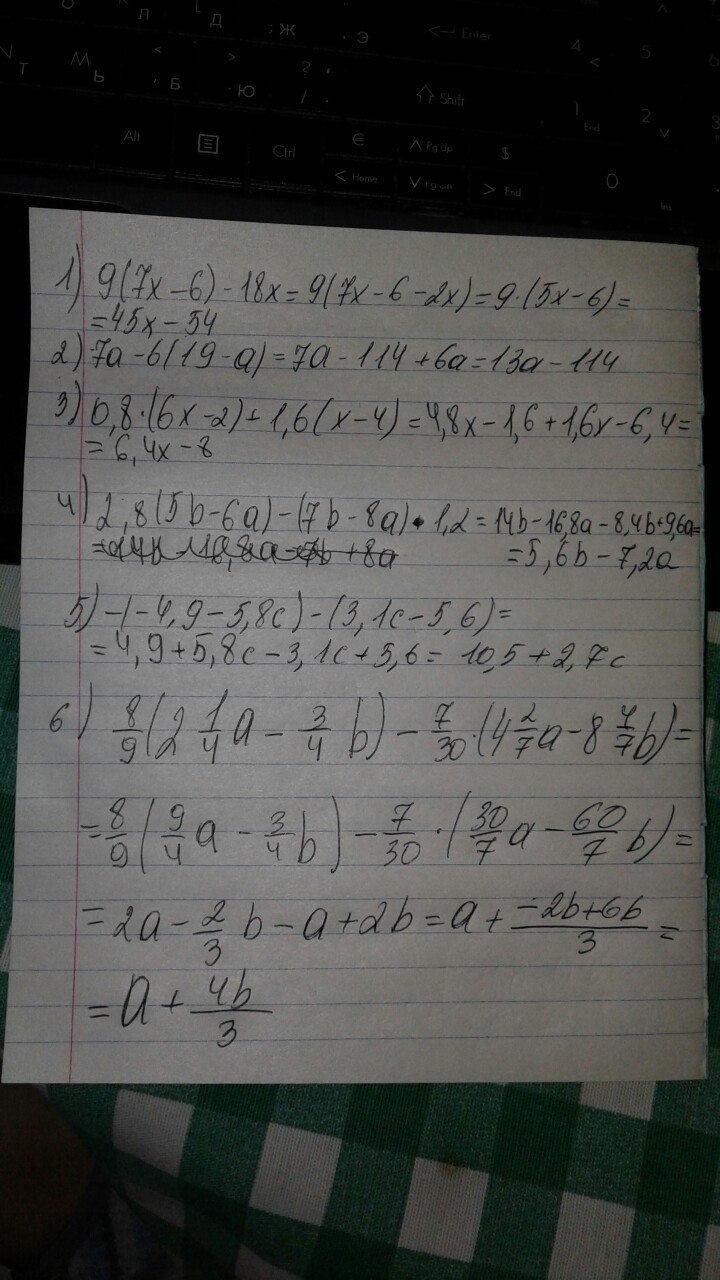 Л Д ; Ж , Э <— Enter 4 5
Т М Ь < , Б > . Ю ? , / . ⇧ Shift 1 End 2
Alt Ctrl € ∧ Pg Up $ 0 Ins
< Home ∨ Pg Dn > End
1) 9(7x-6)-18x=9(7x-6-2x)=9·(5x-6)=
=45x-54
2) 7a-6(19-a)=7a-114+6a=13a-114
3) 0,8·(6x-2)+1,6(x-4)=4,8x-1,6+1,6x-6,4=
=6,4x-8
4) 2,8(5b-6a)-(7b-8a)·1,2=14b-16,8a-8,4b+9,6a=
=5,6b-7,2a
5) -(-4,9-5,8c)-(3,1c-5,6)=
=4,9+5,8c-3,1c+5,6=10,5+2,7c
6) 8/9(2 1/4a-3/4b)-7/30·(4 2/7a-8 4/7b)=
=8/9(9/4a-3/4b)-7/30·(30/7a-60/7b)=
=2a-2/3b-a+2b=a+(-2b+6b)/3=
=a+4b/3